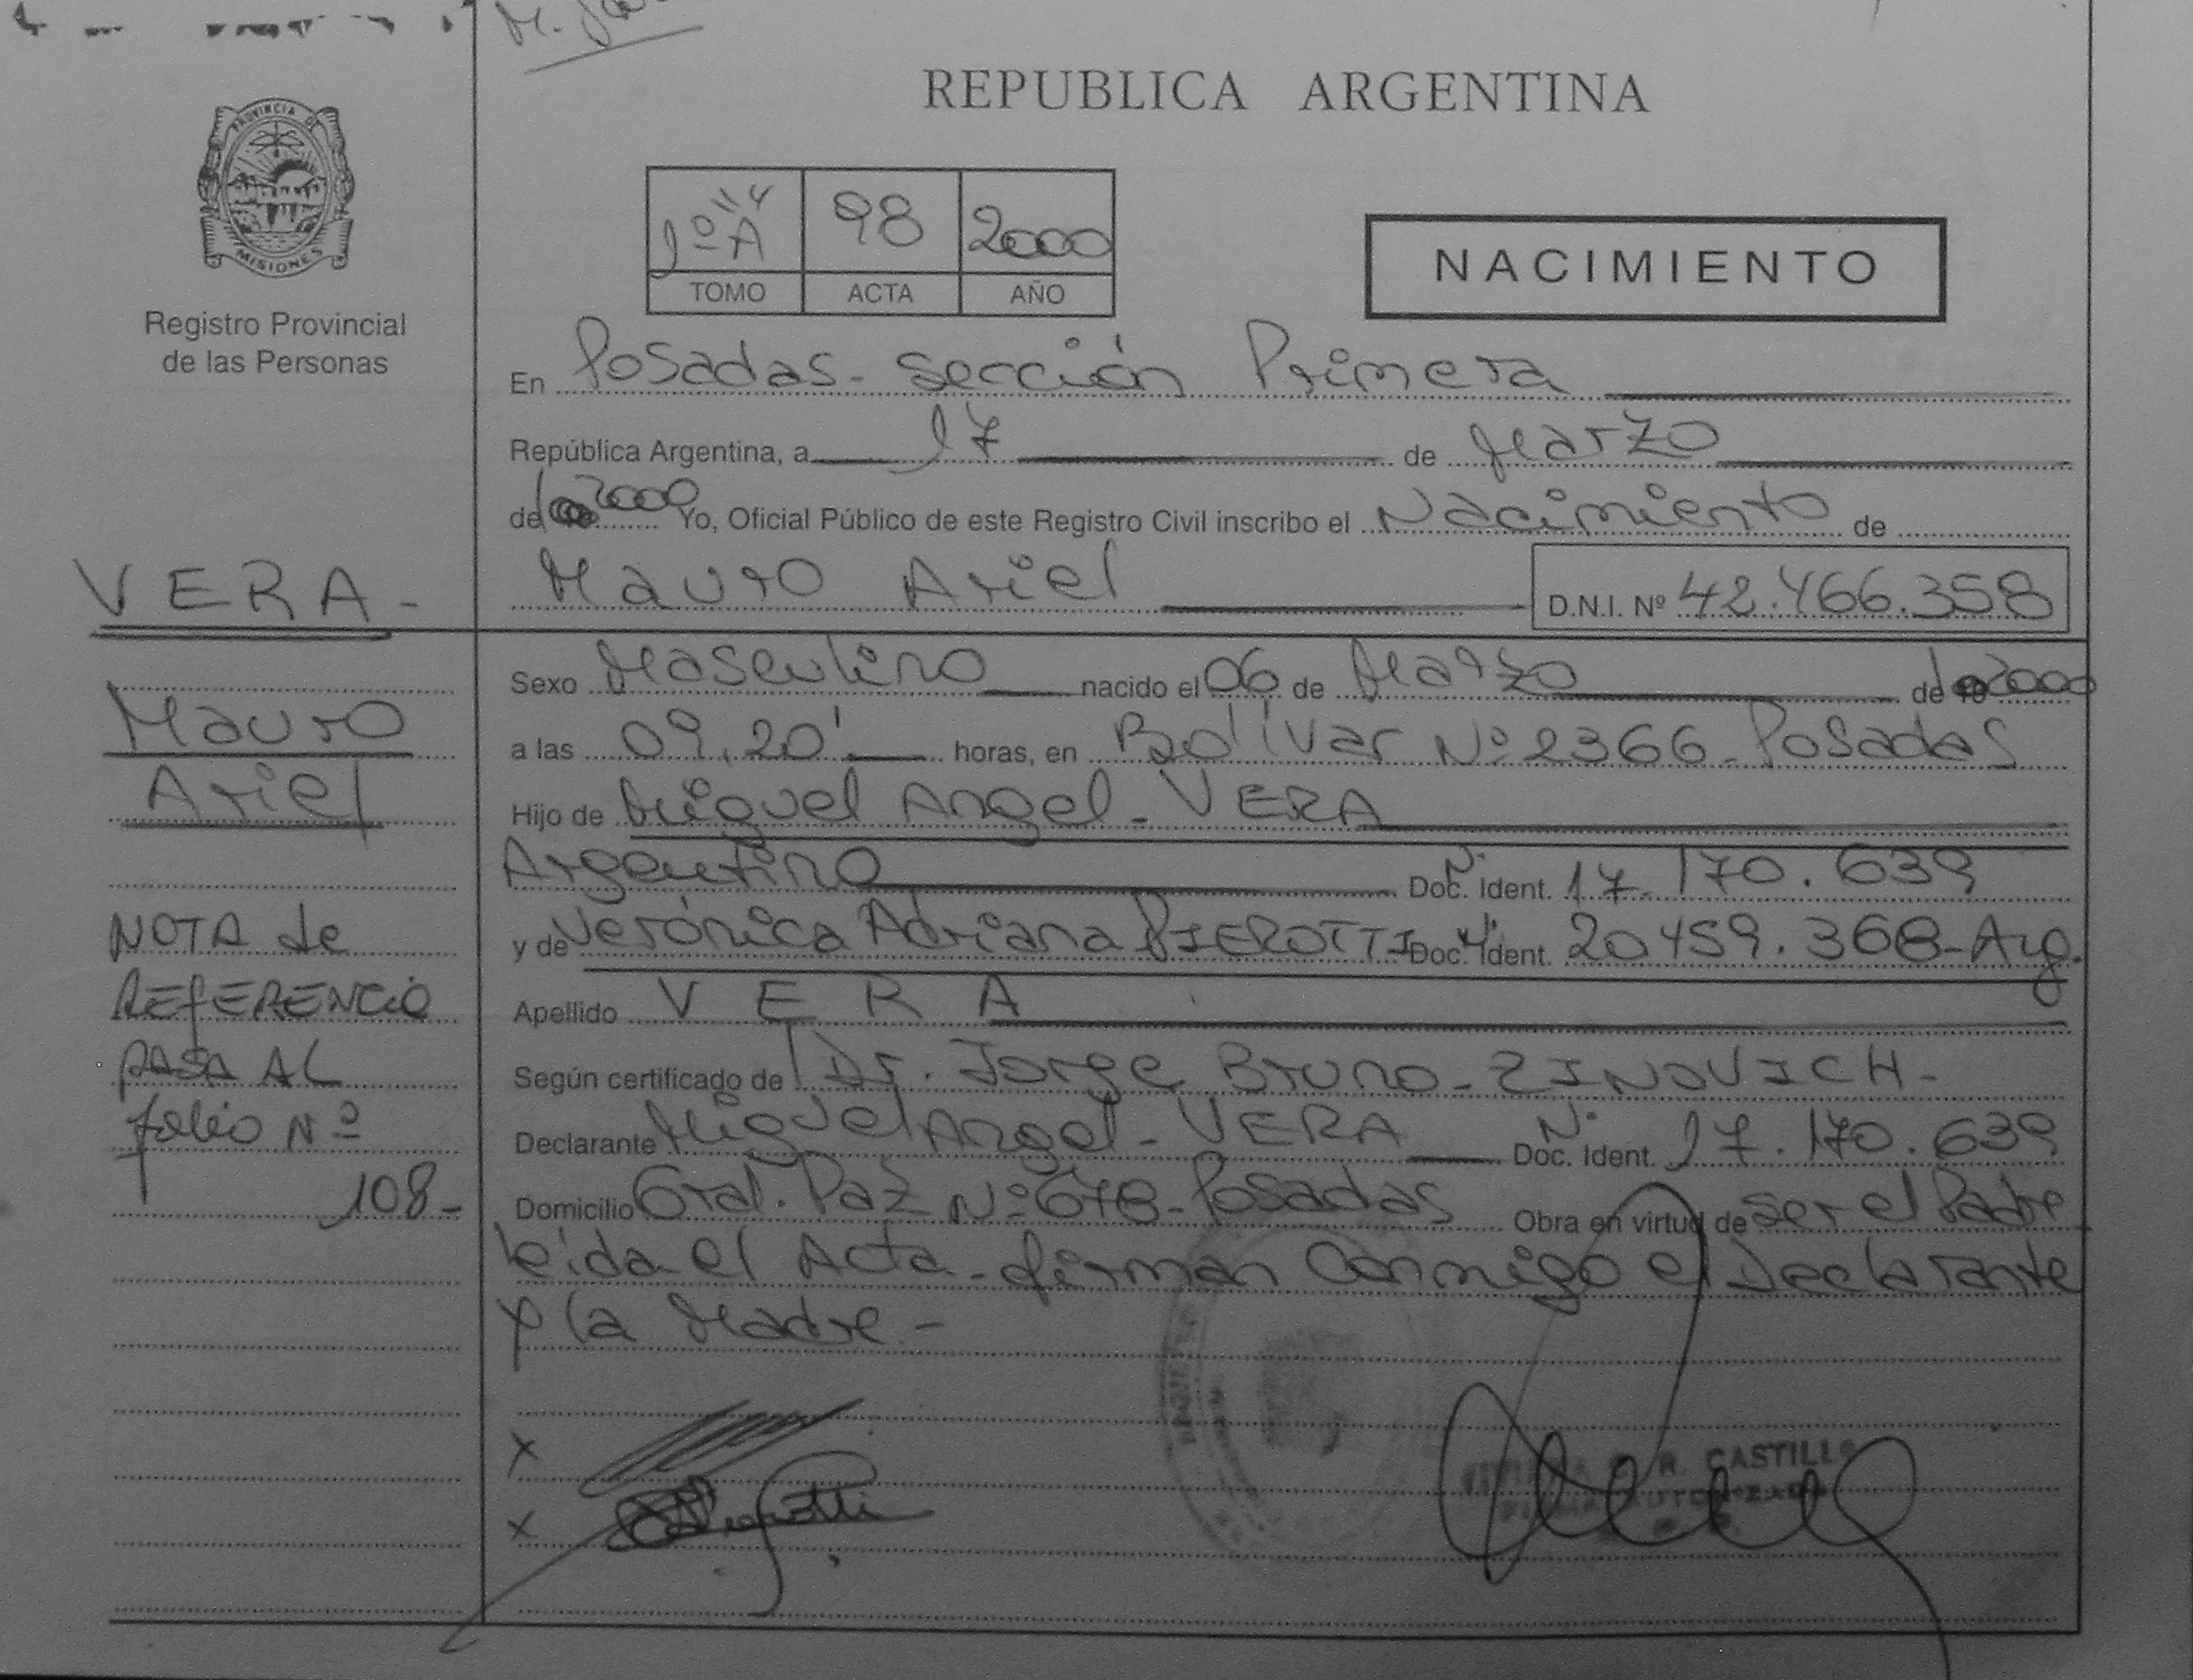 REPUBLICA ARGENTINA
PROVINCIA DE
MISIONES
Registro Provincial
de las Personas
1º A 98 2000
TOMO ACTA AÑO
NACIMIENTO
En Posadas - Sección Primera
República Argentina, a 17 de Marzo
de 2000 Yo, Oficial Público de este Registro Civil inscribo el Nacimiento de
Mauro Ariel D.N.I. Nº 42.466.358
VERA -
Mauro
Ariel
NOTA de
REFERENCIA
PASA AL
folio Nº
108 -
Sexo Masculino nacido el 06 de Marzo de 2000
a las 09,20' horas, en Bolívar Nº 2366 - Posadas
Hijo de Miguel Angel - VERA
Argentino Doc. Ident. Nº 17.170.639
y de Verónica Adriana PIEROTTI Doc. Ident. 20459.368 - Arg.
Apellido VERA
Según certificado de Dr. Jorge Bruno - ZINOVICH -
Declarante Miguel Angel - VERA Doc. Ident. Nº 17.170.639
Domicilio Gral. Paz Nº 678 - Posadas Obra en virtud de ser el Padre
leida el Acta - firman Conmigo el Declarante
y la Madre -
x
x
R. CASTILLO
FIRMA AUTORIZADA